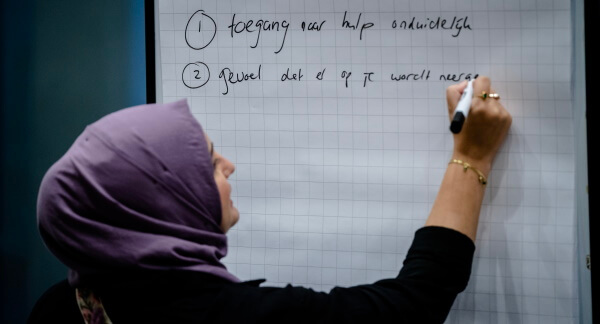 ① toegang naar hulp onduidelijk
② gevoel dat er op je wordt